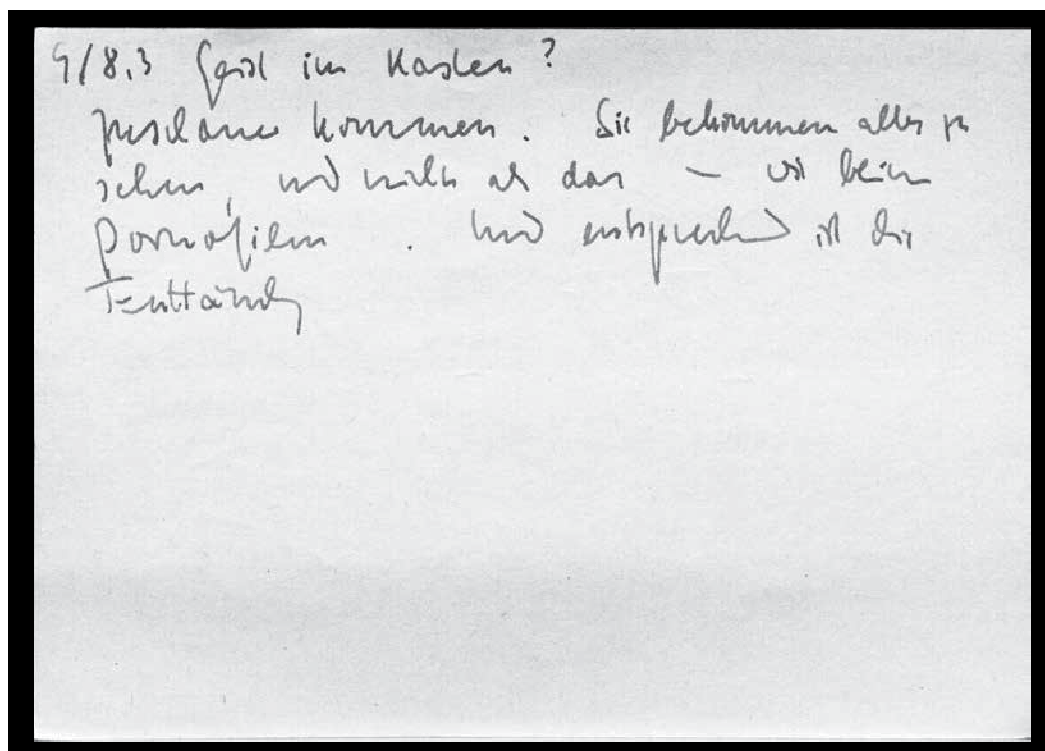 9/8,3 Geist im Kasten?
Zuschauer kommen. Sie bekommen alles zu
sehen, und nichts als das – wie beim
Pornofilm. Und entsprechend ist die